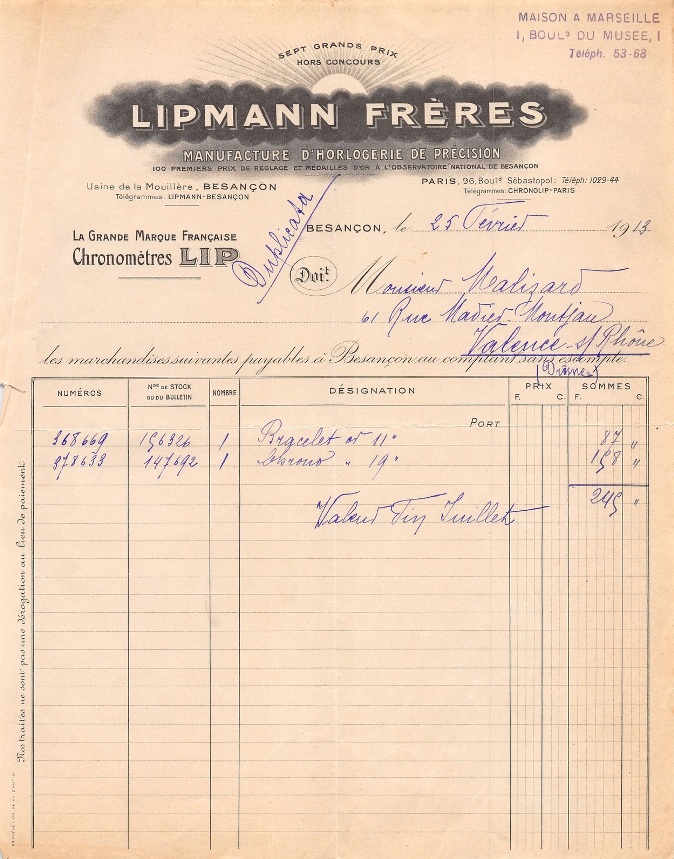 MAISON A MARSEILLE
1, BOULD DU MUSEE, 1
Téléph. 53-68
SEPT GRANDS PRIX
HORS CONCOURS
LIPMANN FRÈRES
MANUFACTURE D'HORLOGERIE DE PRÉCISION
100 PREMIERS PRIX DE RÉGLAGE ET MÉDAILLES D'OR À L'OBSERVATOIRE NATIONAL DE BESANÇON
Usine de la Mouillère, BESANÇON
Télégrammes: LIPMANN-BESANÇON
PARIS, 96, Bould Sébastopol: Téléph: 1029-44
Télégrammes: CHRONOLIP-PARIS
Duplicata
BESANÇON, le 25 Février 1913
LA GRANDE MARQUE FRANÇAISE
Chronomètres LIP
Doit
Monsieur Malizard
61 Rue Madier-Montjau
Valence s/Rhône
(Drôme)
les marchandises suivantes payables à Besançon au comptant sans escompte.
NUMÉROS Nos DE STOCK OU DU BULLETIN NOMBRE DÉSIGNATION PRIX F. C. SOMMES F. C.
PORT
368669 156326 1 Bracelet or 11" 87 "
378633 147692 1 Chrono " 19" 158 "
245 "
Valeur Fin Juillet
Nos traites ne sont pas une dérogation au lieu de paiement